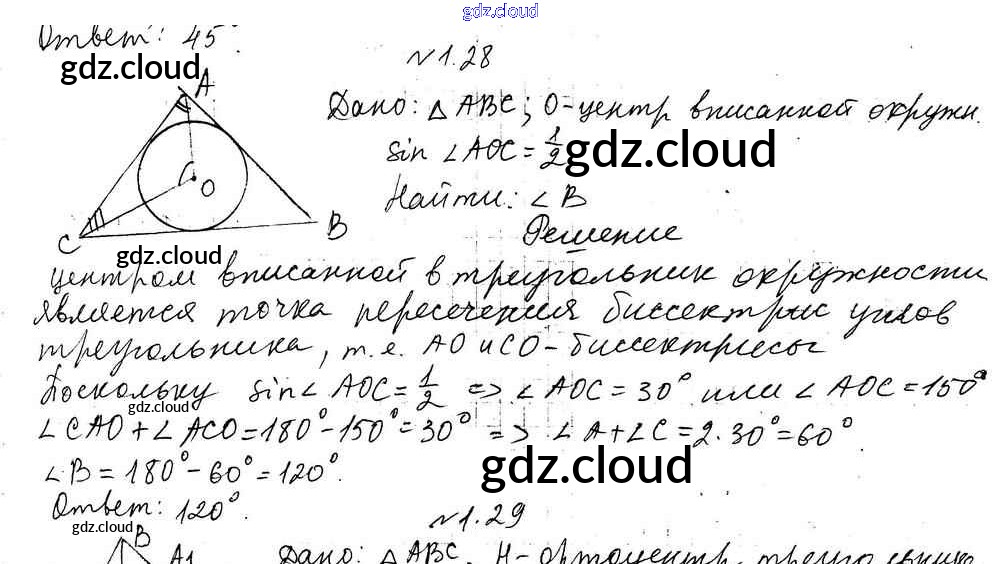 gdz.cloud
Ответ: 45°.
gdz.cloud
№1.28
A
Дано: △ABC; O-центр вписанной окружн.
sin ∠AOC = 1/2
gdz.cloud
O
Найти: ∠B
B
C
Решение
gdz.cloud
Центром вписанной в треугольник окружности
является точка пересечения биссектрис углов
треугольника, т.е. AO и CO - биссектрисы
Поскольку sin∠AOC = 1/2 => ∠AOC = 30° или ∠AOC = 150°
gdz.cloud
∠CAO + ∠ACO = 180° - 150° = 30° => ∠A + ∠C = 2·30° = 60°
∠B = 180° - 60° = 120°.
gdz.cloud
Ответ: 120°.
gdz.cloud
№1.29
B
A1
Дано: △ABC, H - ортоцентр треугольника